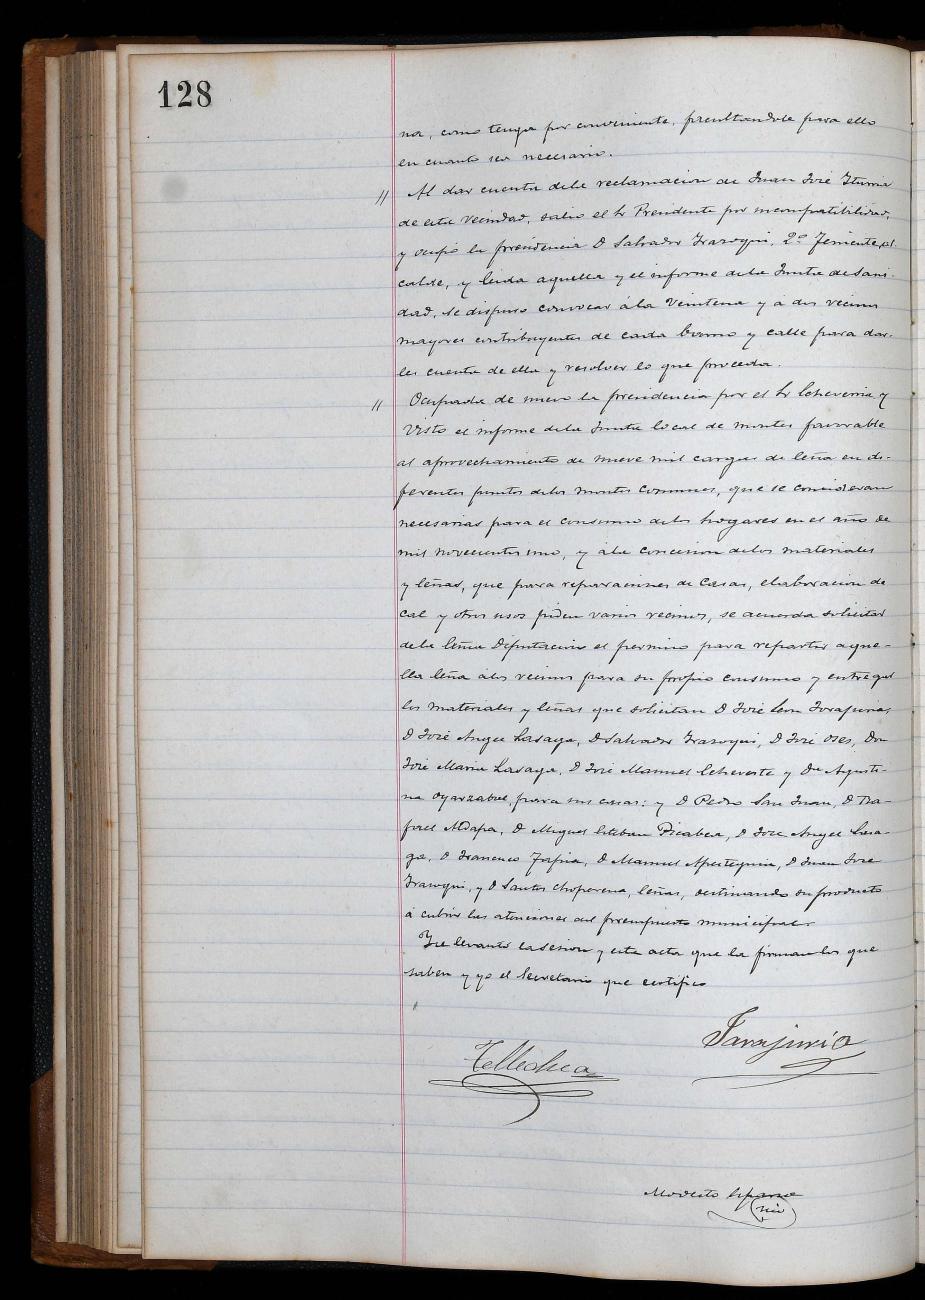 128
na, como tenga por conveniente, facultandole para ello
en cuanto sea necesario.
// Al dar cuenta dela reclamacion de Juan José Yturria
de esta vecindad, salió el Sr Presidente por incompatibilidad,
y ocupó la presidencia D Salvador Irasoqui, 2º Teniente al-
calde, y leida aquella y el informe dela Junta de Sani-
dad, se dispuso convocar á la Veintena y a dos vecinos
mayores contribuyentes de cada barrio y calle para dar-
les cuenta de ella y resolver lo que proceda.
// Ocupada de nuevo la presidencia por el Sr Echeverria y
visto el informe dela Junta local de montes favorable
al aprovechamiento de nueve mil cargas de leña en di-
ferentes puntos delos montes comunes, que se consideran
necesarias para el consumo delos hogares en el año de
mil novecientos uno, y ala concesion delos materiales
y leñas, que para reparaciones de casas, elaboracion de
cal y otros usos piden varios vecinos, se acuerda solicitar
dela Diputacion el permiso para repartir aque-
lla leña alos vecinos para su propio consumo y entregar
los materiales y leñas que solicitan D José Leon Tarajuria,
D José Angel Lasaga, D Salvador Irasoqui, D José Oses, Don
José Maria Lasaga, D José Manuel Echeveste y Da Agusti-
na Oyarzabal, para sus casas: y D Pedro San Juan, D Ra-
fael Aldapa, D Miguel Esteban Picabea, D Jose Angel Lasa-
ga, D Francisco D Manuel Apestequia, D Juan José
Irasoqui, y D Santos Choperena, leñas, destinando su producto
á cubrir las atenciones del presupuesto municipal.
Y se levantó la sesion y esta acta que la firman los que
saben y yo el Secretario que certifico
Tarajuria
Tellechea
Modesto Esparza